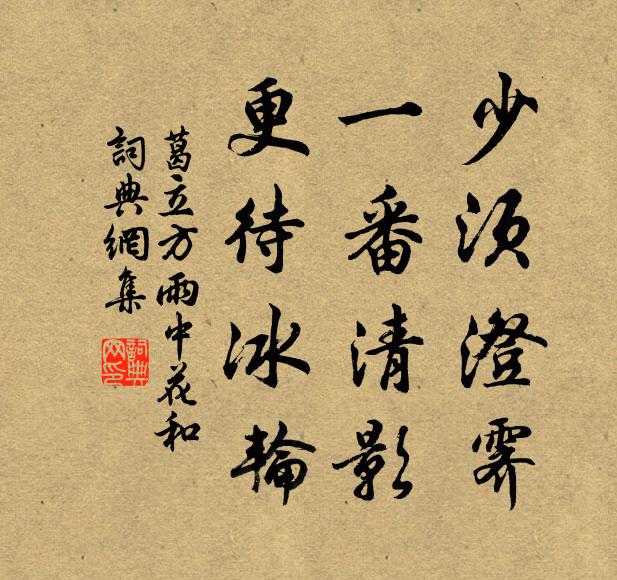 少須澄霽
一番清影
更待冰輪
葛立方雨中花和
詞典網集
詞典網印